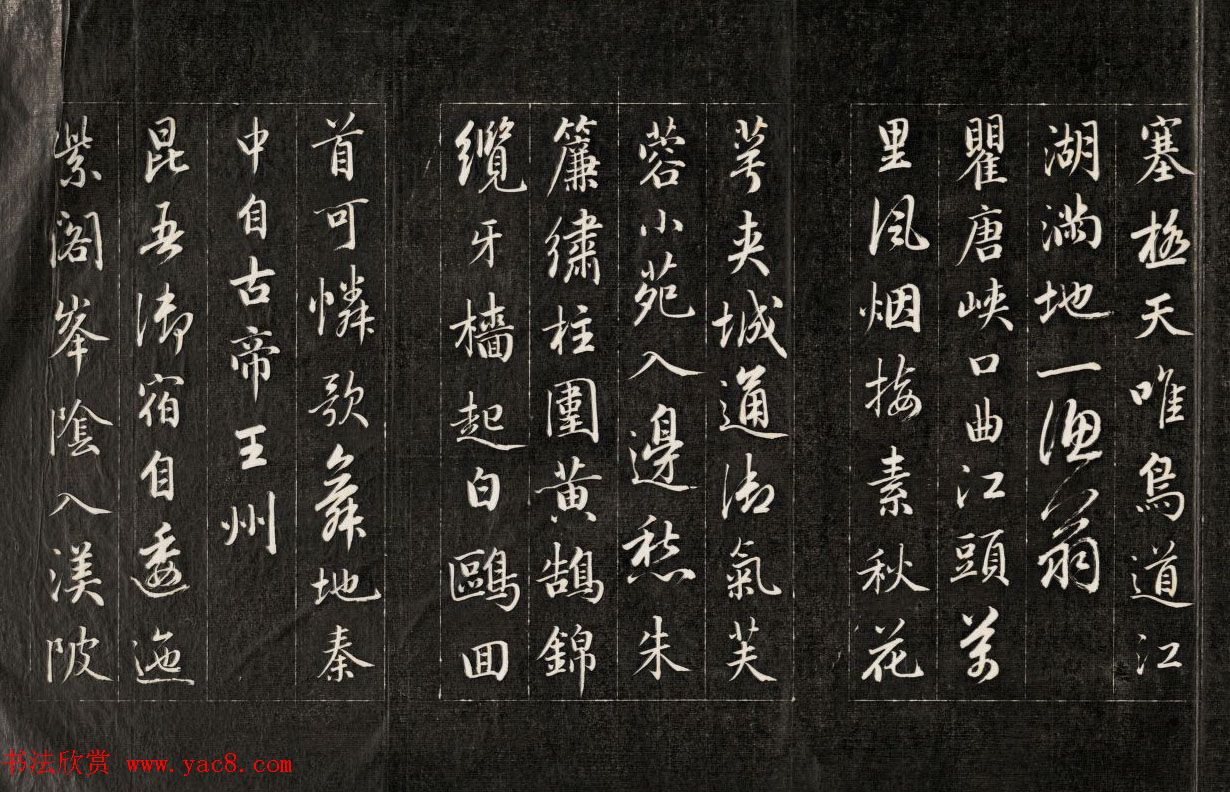 塞極天唯鳥道江
湖滿地一漁翁
瞿唐峽口曲江頭萬
里風烟接素秋花
萼夹城通御氣芙
蓉小苑入邊愁朱
簾繡柱圍黄鵠錦
纜牙檣起白鷗回
首可憐歌舞地秦
中自古帝王州
昆吾御宿自逶迤
紫閣峯陰入渼陂
书法欣赏 www.yac8.com